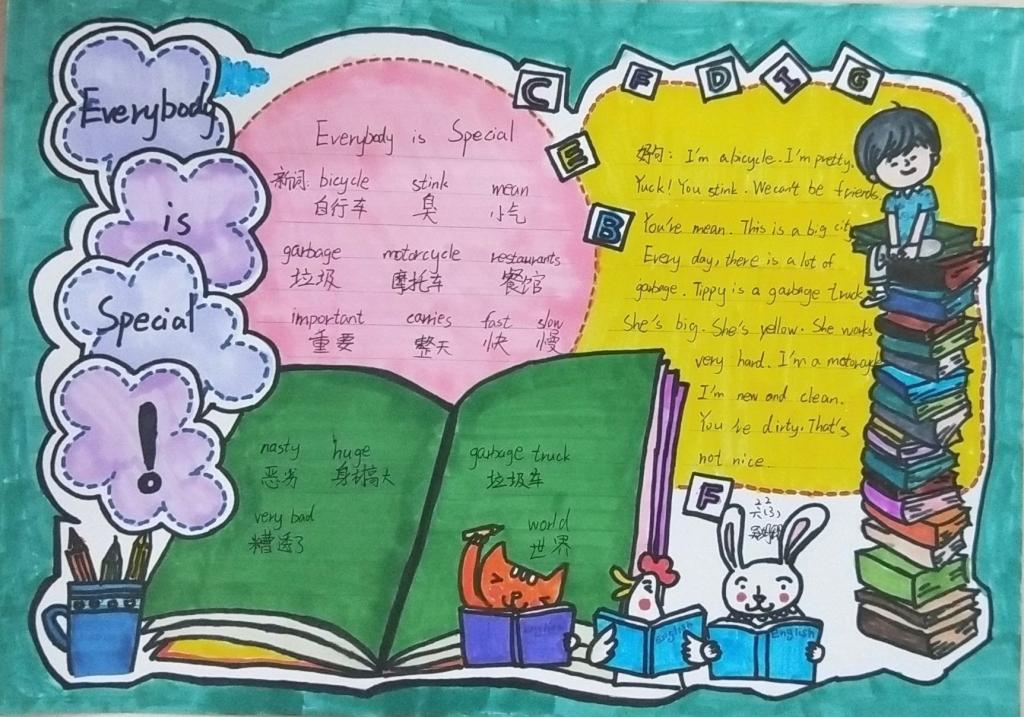 Everybody
is
Special
!
C
E
B
F
D
I
G
Everybody is Special
新词: bicycle stink mean
自行车 臭 小气
garbage motorcycle restaurants
垃圾 摩托车 餐馆
important carries fast slow
重要 整天 快 慢
nasty huge
恶劣 身材高大
very bad
糟透了
garbage truck
垃圾车
world
世界
好句: I'm a bicycle. I'm pretty.
Yuck! You stink. We can't be friends.
You're mean. This is a big city
Every day, there is a lot of
garbage. Tippy is a garbage truck
She's big. She's yellow. She works
very hard. I'm a motorcycle
I'm new and clean.
You're dirty. That's
not nice.
F
English
English
English